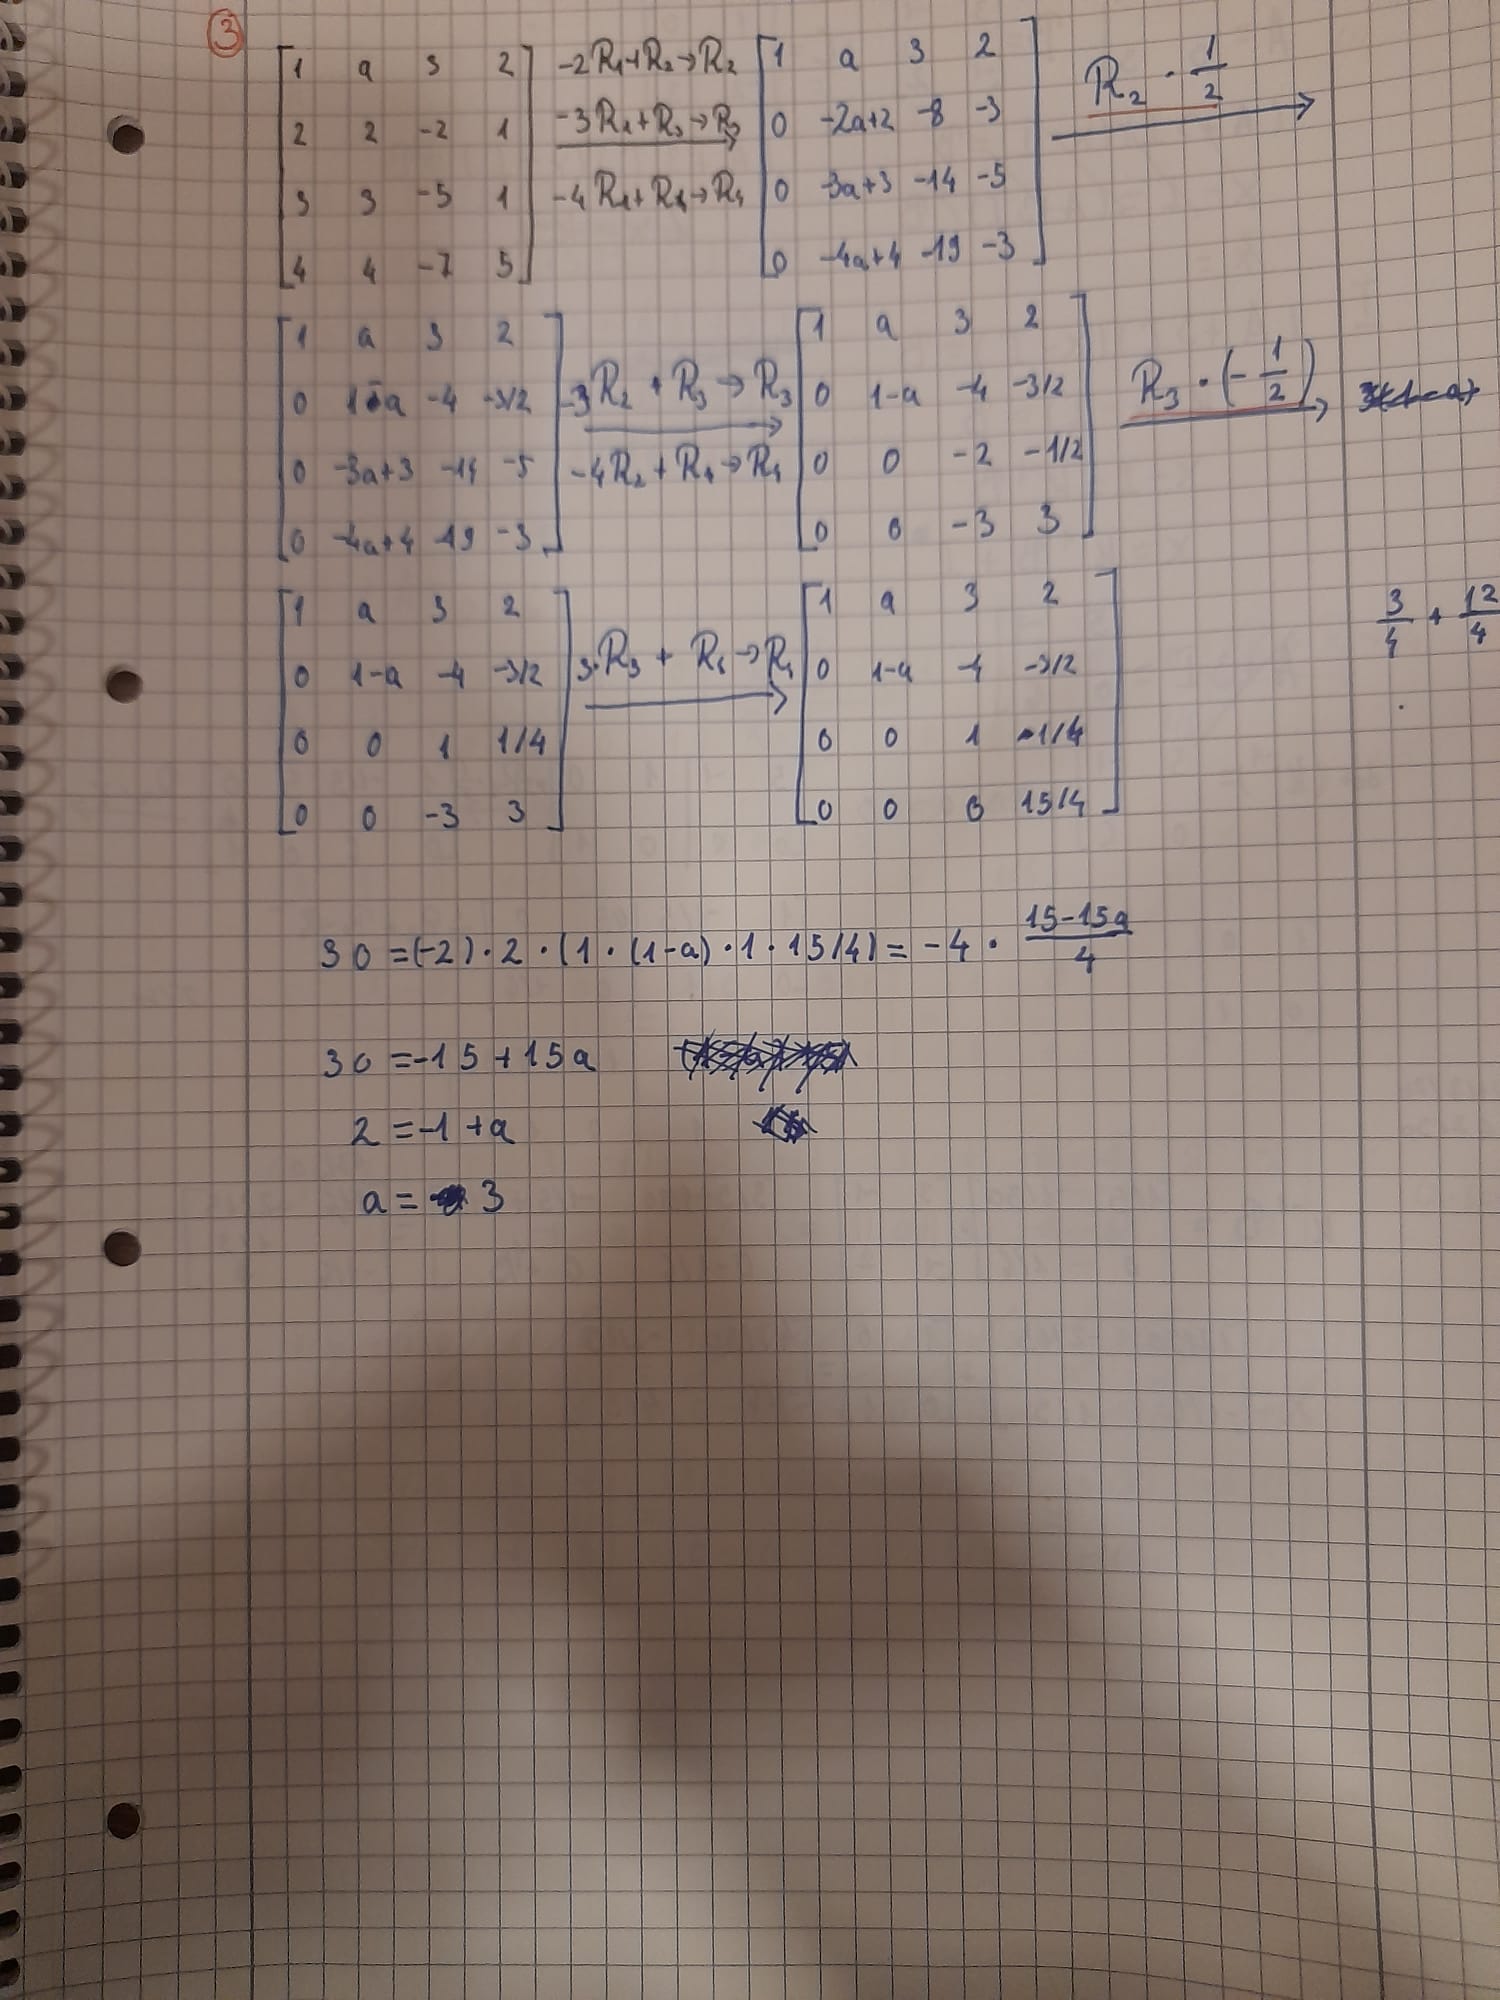 3
1 a 3 2
2 2 -2 1
3 3 -5 1
4 4 -7 5
-2R₁+R₂→R₂
-3R₁+R₃→R₃
-4R₁+R₄→R₄
1 a 3 2
0 -2a+2 -8 -3
0 -3a+3 -14 -5
0 -4a+4 -19 -3
R₂ · 1/2
1 a 3 2
0 1-a -4 -3/2
0 -3a+3 -14 -5
0 -4a+4 -19 -3
-3R₂ + R₃ → R₃
-4R₂ + R₄ → R₄
1 a 3 2
0 1-a -4 -3/2
0 0 -2 -1/2
0 0 -3 3
R₃ · (-1/2)
1 a 3 2
0 1-a -4 -3/2
0 0 1 1/4
0 0 -3 3
3·R₃ + R₄ → R₄
1 a 3 2
0 1-a -4 -3/2
0 0 1 1/4
0 0 0 15/4
3/4 + 12/4
30 = (-2) · 2 · (1 · (1-a) · 1 · 15/4) = -4 · (15-15a)/4
30 = -15 + 15a
2 = -1 + a
a = 3